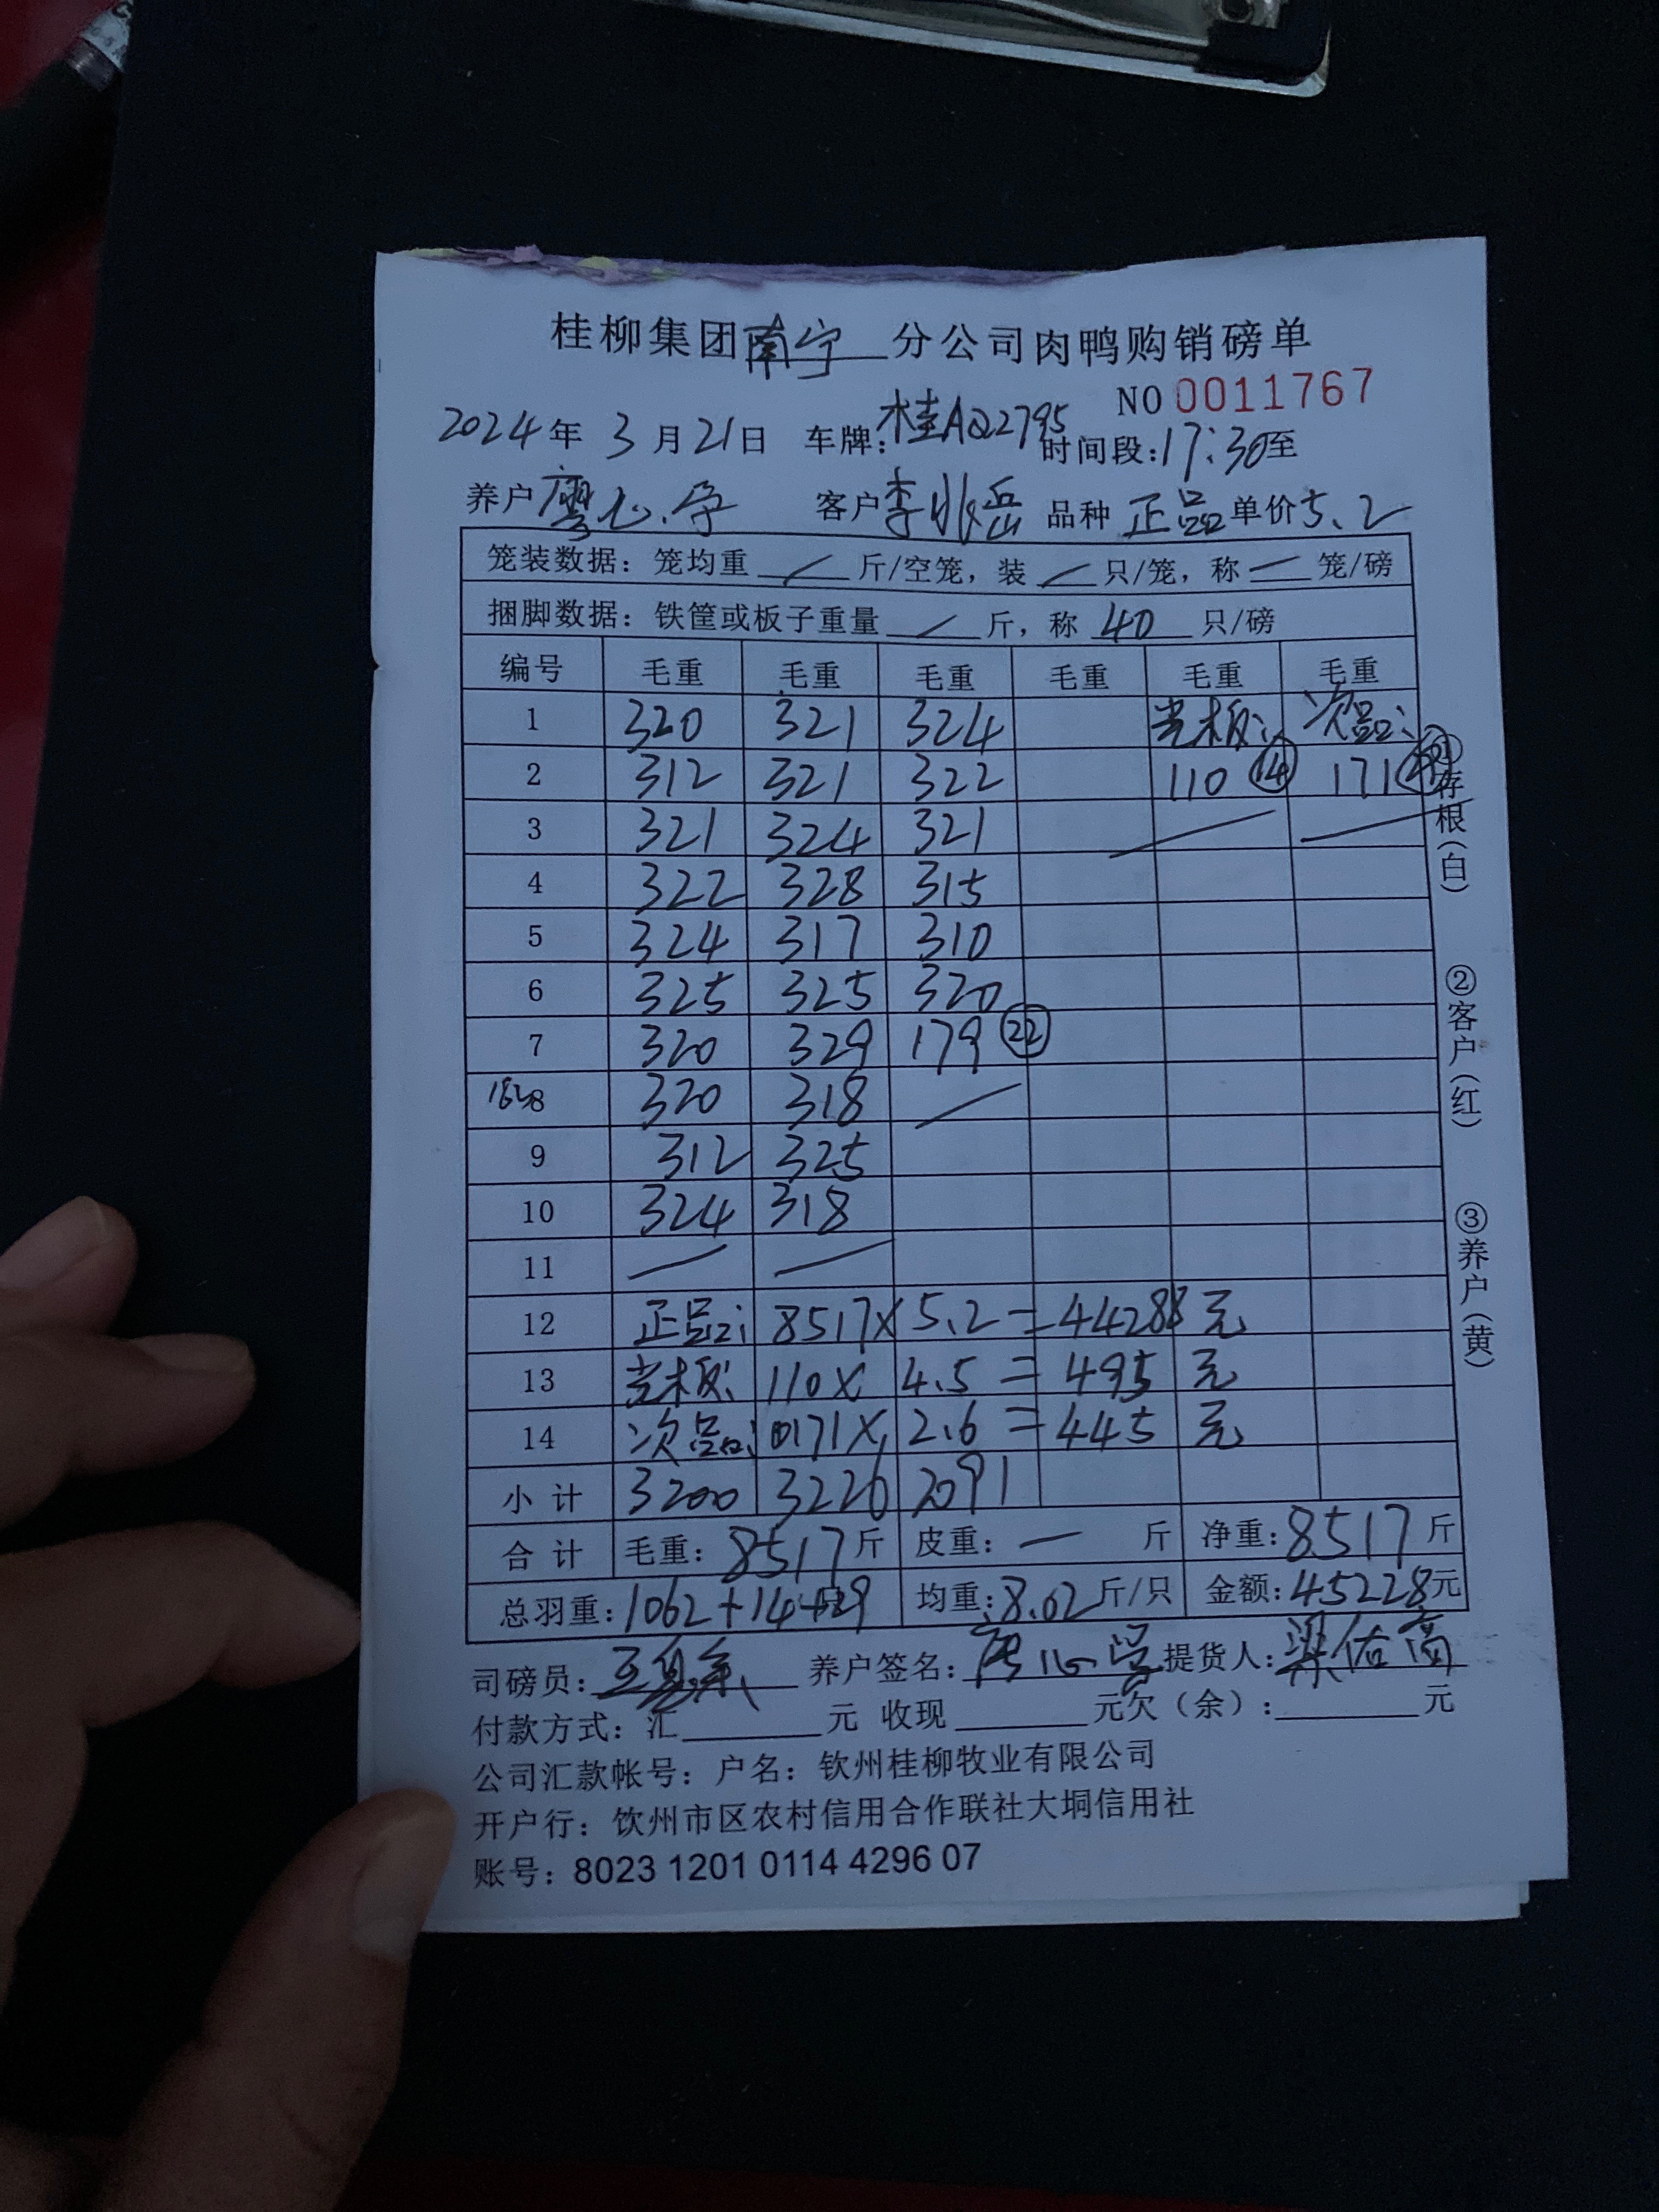 桂柳集团南宁分公司肉鸭购销磅单
NO 0011767
2024年 3月21日 车牌:桂AQ2795 时间段:17:30至
养户廖心 客户李兆岳 品种 正品 单价5.2
笼装数据：笼均重 / 斤/空笼，装 / 只/笼，称 一 笼/磅
捆脚数据：铁筐或板子重量 / 斤，称 40 只/磅
编号 毛重 毛重 毛重 毛重 毛重 毛重
1 320 321 324 光板: 次品:
2 312 321 322 110 ⑭ 171
3 321 324 321
4 322 328 315
5 324 317 310
6 325 325 320
7 320 329 179 ㉒
8 320 318 /
9 312 325
10 324 318
11 / /
12 正品: 8517×5.2=44288元
13 光板: 110×4.5=495元
14 次品: 171×2.6=445元
小计 3200 3226 2091
合计 毛重：8517斤 皮重：一 斤 净重：8517斤
总羽重：1062+14+29 均重：8.02斤/只 金额：45228元
司磅员： 养户签名： 提货人：梁佑高
付款方式：汇 元 收现 元欠（余）： 元
公司汇款帐号：户名：钦州桂柳牧业有限公司
开户行：钦州市区农村信用合作联社大垌信用社
账号：8023 1201 0114 4296 07
①存根（白） ②客户（红） ③养户（黄）